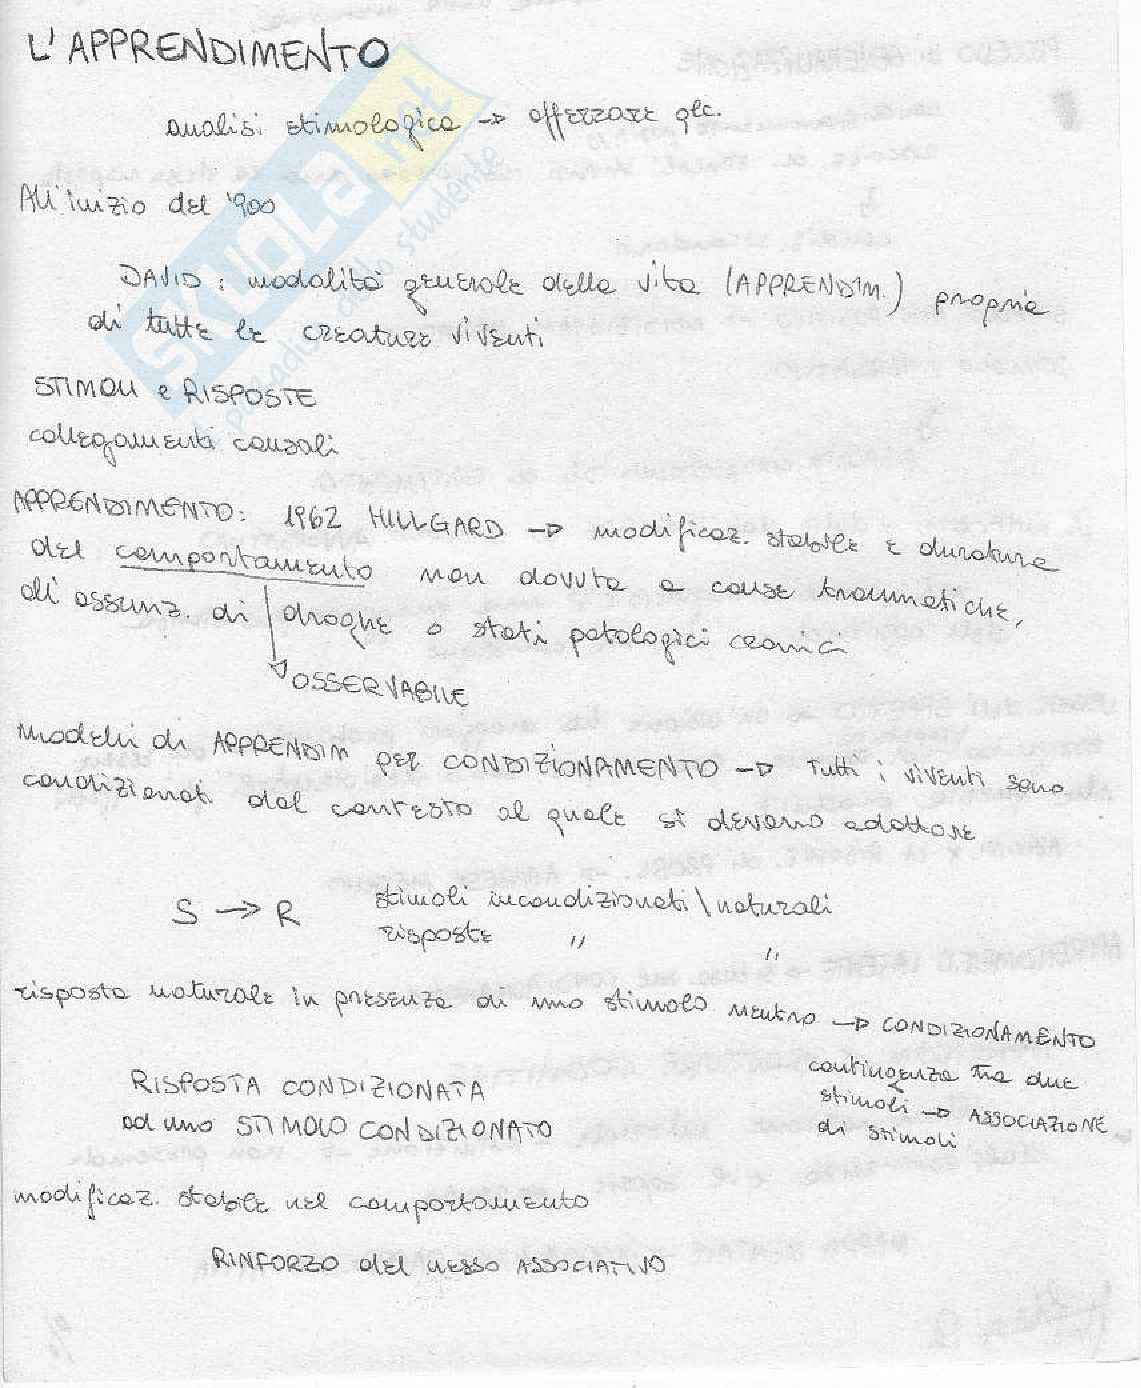 L'APPRENDIMENTO
analisi etimologica -> afferrare qlc.
All'inizio del '900
DAVID: modalità generale della vita (APPRENDIM.) propria
di tutte le creature viventi
STIMOLI e RISPOSTE
collegamenti causali
APPRENDIMENTO: 1962 HILLGARD -> modificaz. stabile e duratura
del comportamento non dovuta a cause traumatiche,
all'assunz. di droghe o stati patologici cronici
OSSERVABILE
Modelli di APPRENDIM per CONDIZIONAMENTO -> Tutti i viventi sono
condizionati dal contesto al quale si devono adattare
S -> R stimoli incondizionati\naturali
risposte " "
risposta naturale in presenza di uno stimolo neutro -> CONDIZIONAMENTO
contingenza tra due
stimoli -> ASSOCIAZIONE
di stimoli
RISPOSTA CONDIZIONATA
ad uno STIMOLO CONDIZIONATO
modificaz. stabile nel comportamento
RINFORZO del nesso ASSOCIATIVO
SKUOLA.net
paradiso dello studente